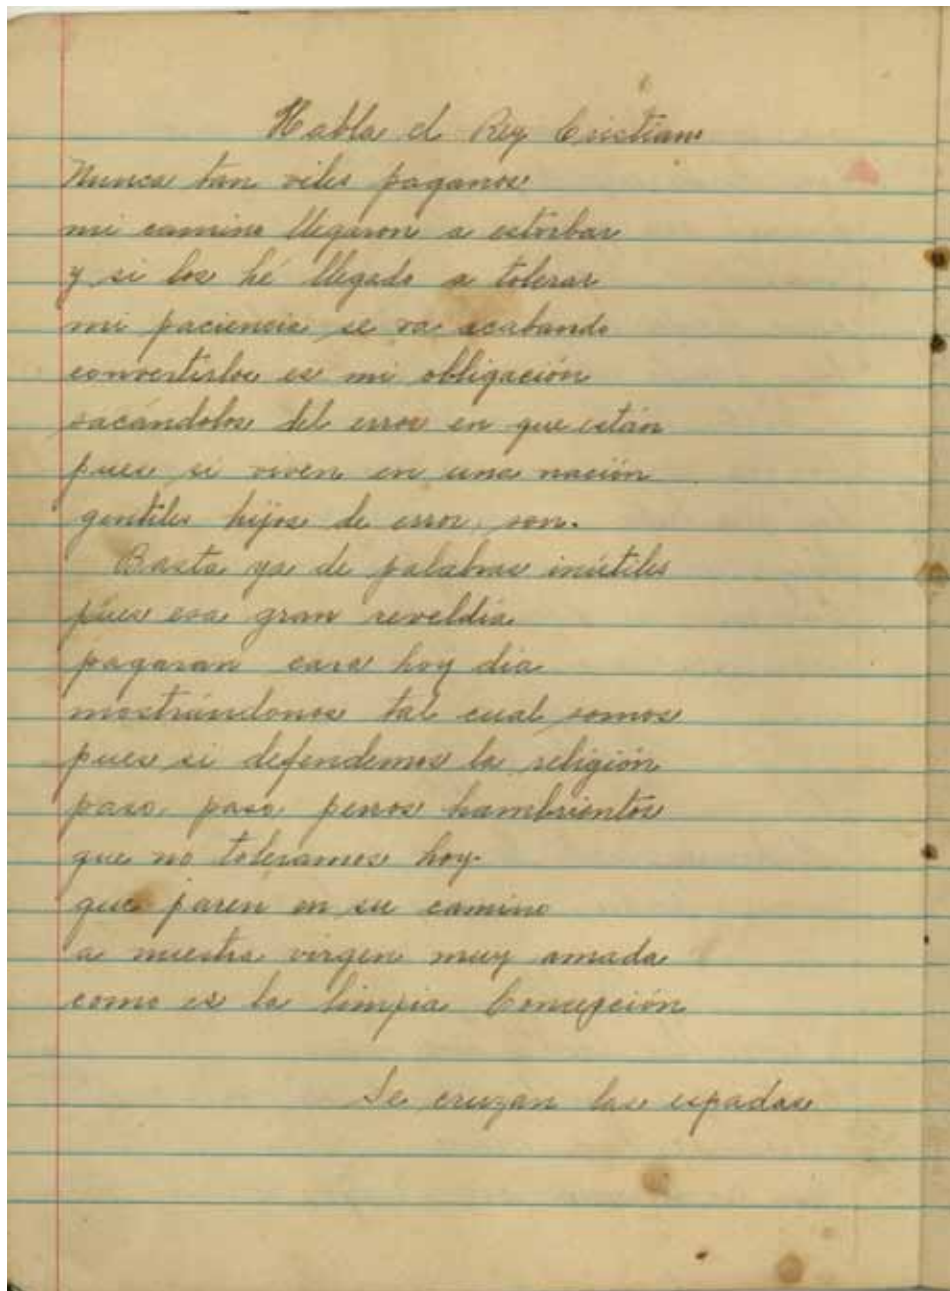 Habla el Rey Cristiano
Nunca tan viles paganos
mi camino llegaron a estorbar
y si los hé llegado a tolerar
mi paciencia se va acabando
convertirlos es mi obligación
sacándolos del error en que están
pues si viven en una nación
gentiles hijos de error son.
Basta ya de palabras inútiles
pues esa gran reveldía
pagaran cara hoy dia
mostrándonos tal cual somos
pues si defendemos la religión
paso, paso perros hambrientos
que no toleramos hoy
que paren en su camino
a nuestra virgen muy amada
como es la limpia Concepción
Se cruzan las espadas